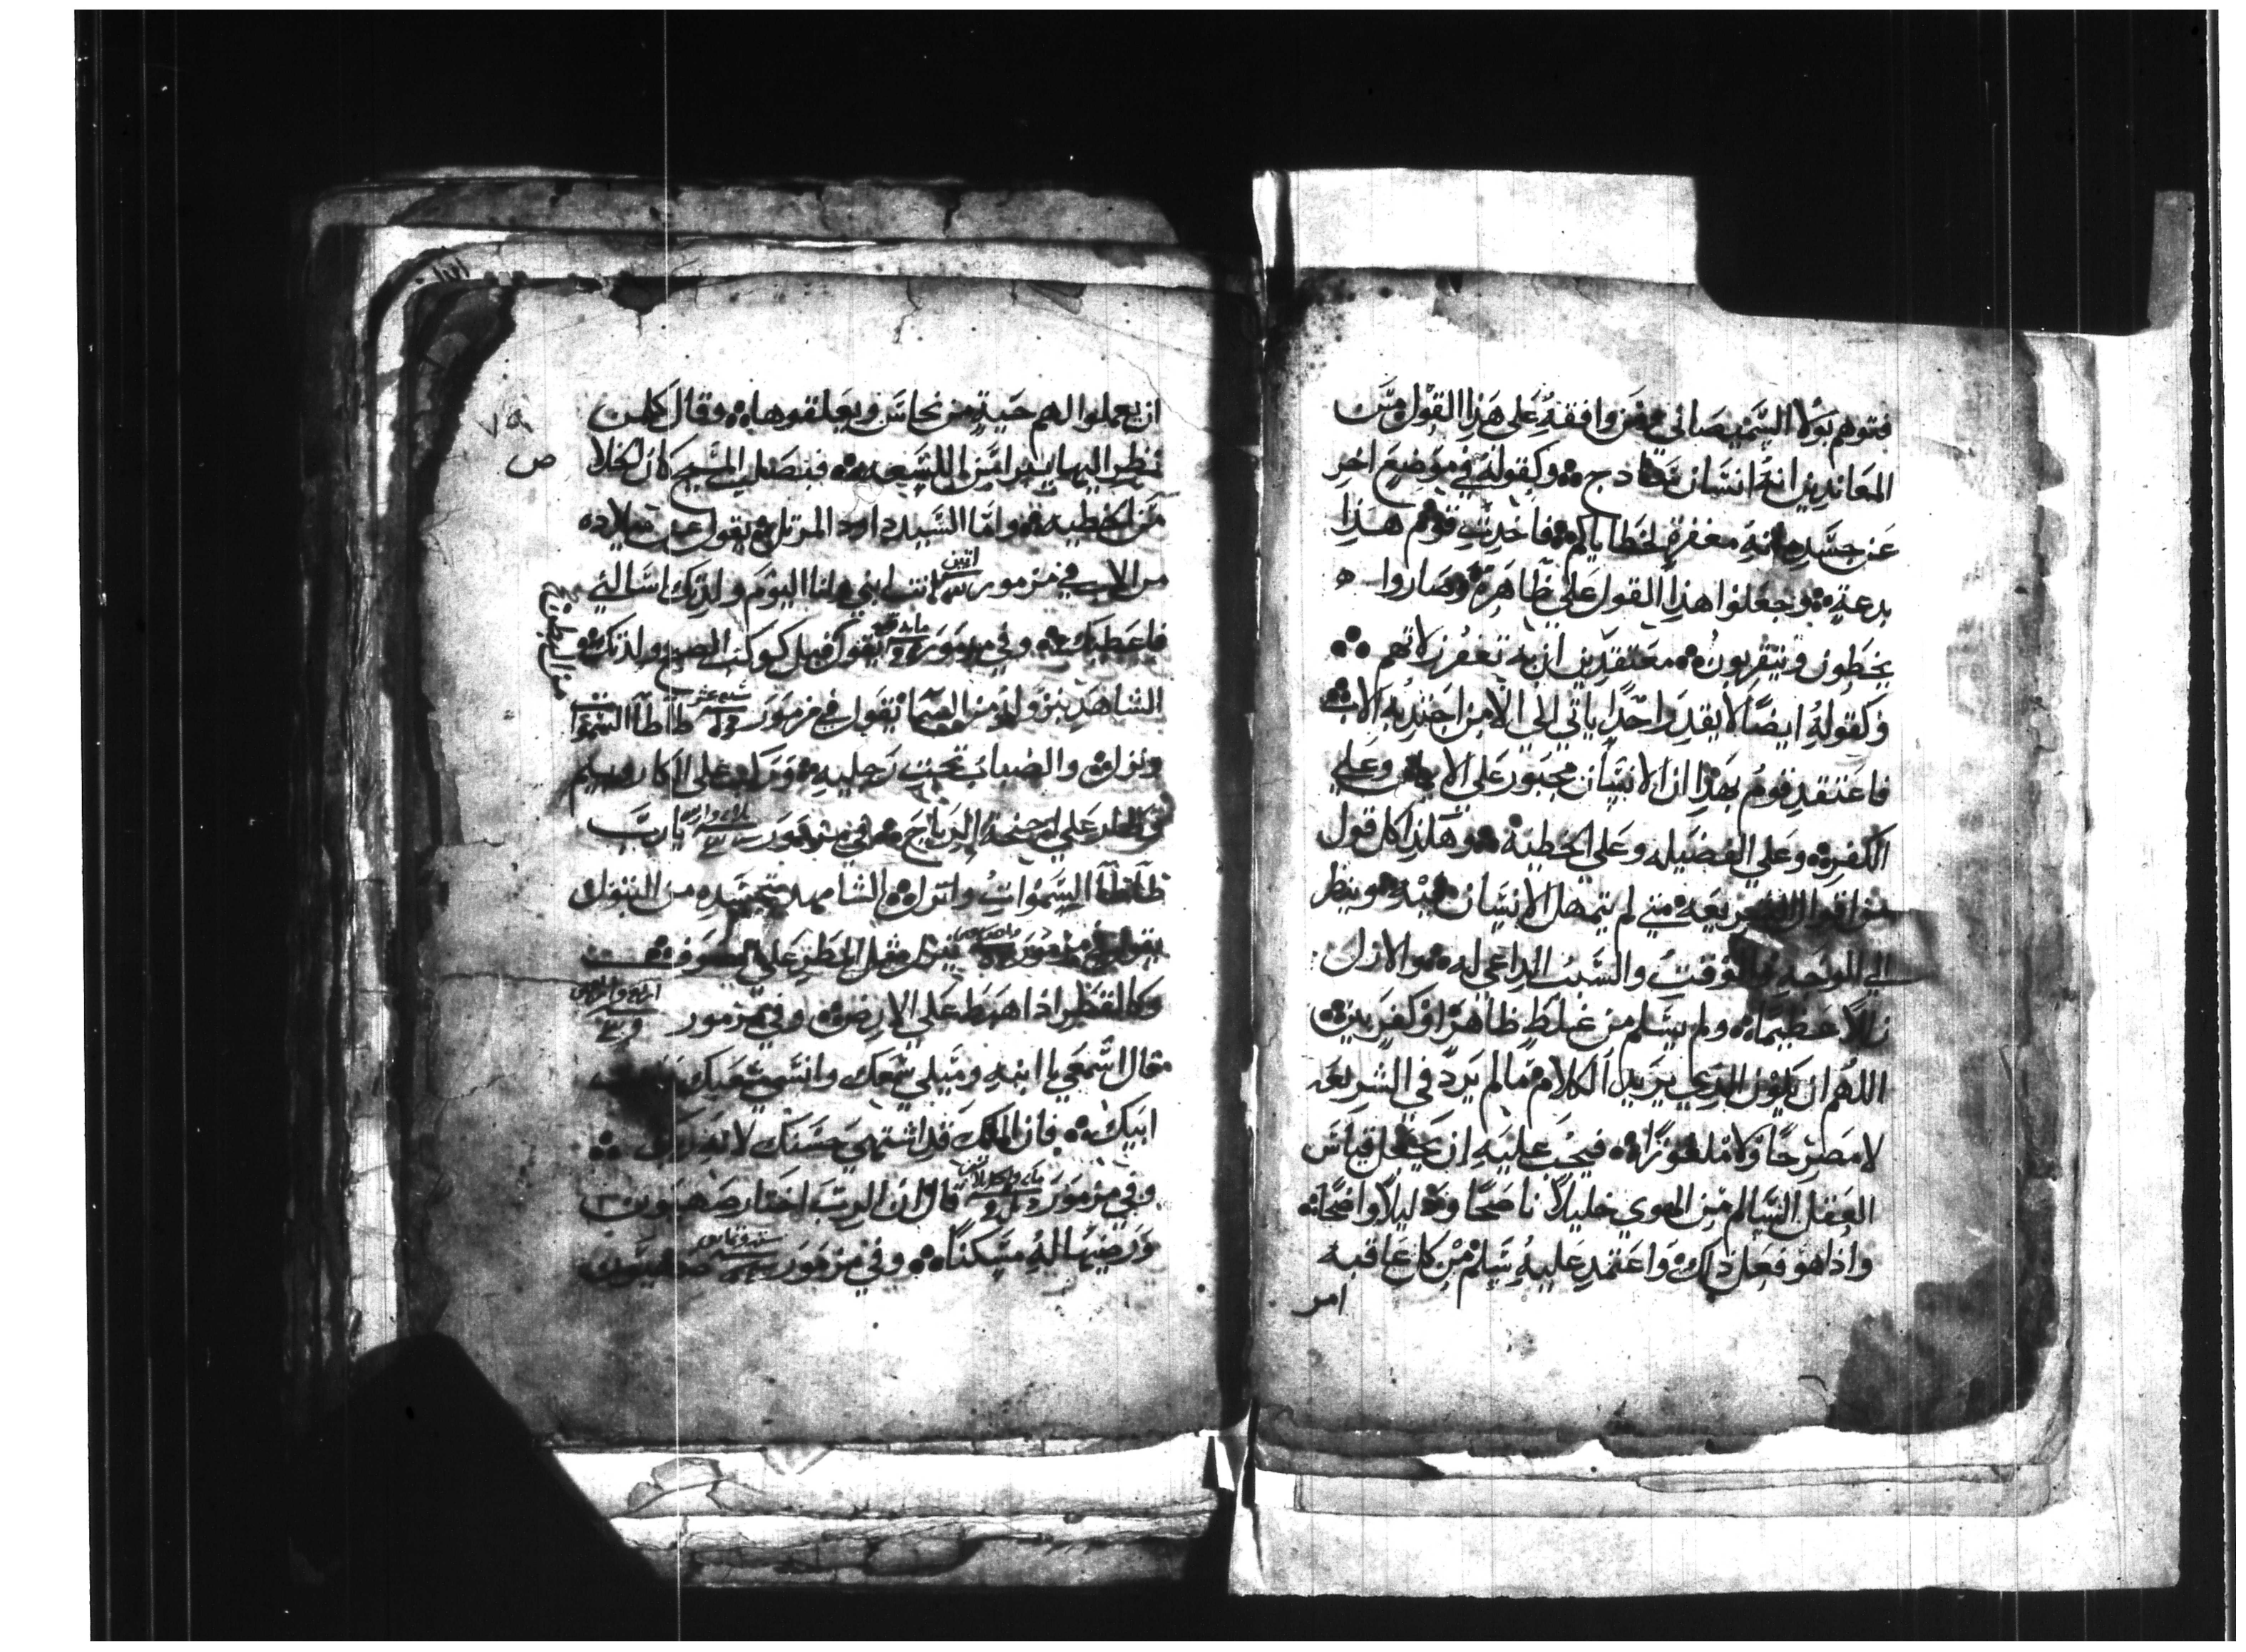 فتوهم بولا السميصائي ومن وافقه على هذا القول من
المعاندين انه انسان ساذج وكقوله في موضع اخر
عن جسده انه مغفرة لخطاياكم فاخذت قوم هذا
بدعة وجعلوا هذا القول على ظاهره وصاروا
يخطون ويتقربون معتقدين ان به تغفر زلاتهم
وكقوله ايضًا لا يقدر احدًا ياتي الي الا من اجتذبه الاب
فاعتقد قوم بهذا ان الانسان مجبور على الايمان وعلى
الكفر وعلى الفضيله وعلى الخطية وهكذا كل قول
من اقوال الشريعه متى لم يتمهل الانسان فيه وينظر
الي الموجه والوقت والسبب الداعي له والا زل
زللًا عظيمًا ولم يسلم من غلط ظاهر او كفر بين
اللهم ان يكون الذي يريد الكلام مما لم يرد في الشريعه
لا مصرحًا ولا ملغوزًا فيجب عليه ان يجعل قياس
العقل السالم من الهوى خليلًا ناصحًا ودليلًا واضحًا
واذا هو فعل ذلك واعتمد عليه سلم من كل عاقبه
امر
٧٥
ان يعملوا لهم حية من نحاس ويعلقوها وقال كل من
نظر اليها يبرا من اللسعه فبصليب المسيح كان الخلاص
من الخطيه واما السيد داود المرتل يقول عن ميلاده
من الاب في مزمور اتنين انت ابني وانا اليوم ولدتك اسالني
فاعطيك وفي مزمور يقول قبل كوكب الصبح ولدتك
الشاهد بنزوله من السما يقول في مزمور سبع عشر طاطا السموات
ونزل والضباب تحت رجليه وركب على الكاروبيم
وطار على اجنحة الرياح وفي مزمور يا رب
طاطا السموات وانزل الشاهد بتجسده من البتول
يقول في مزمور ينزل مثل المطر على الصوف
وكالقطر اذا هبط على الارض وفي مزمور اربع واربعين
مقال اسمعي يا ابنه وميلي سمعك وانسي شعبك وبيت
ابيك فان الملك قد اشتهى حسنك لانه ربك
وفي مزمور قال ان الرب اختار صهيون
ورضيها له مسكنًا وفي مزمور ستة وثمانين صهيون